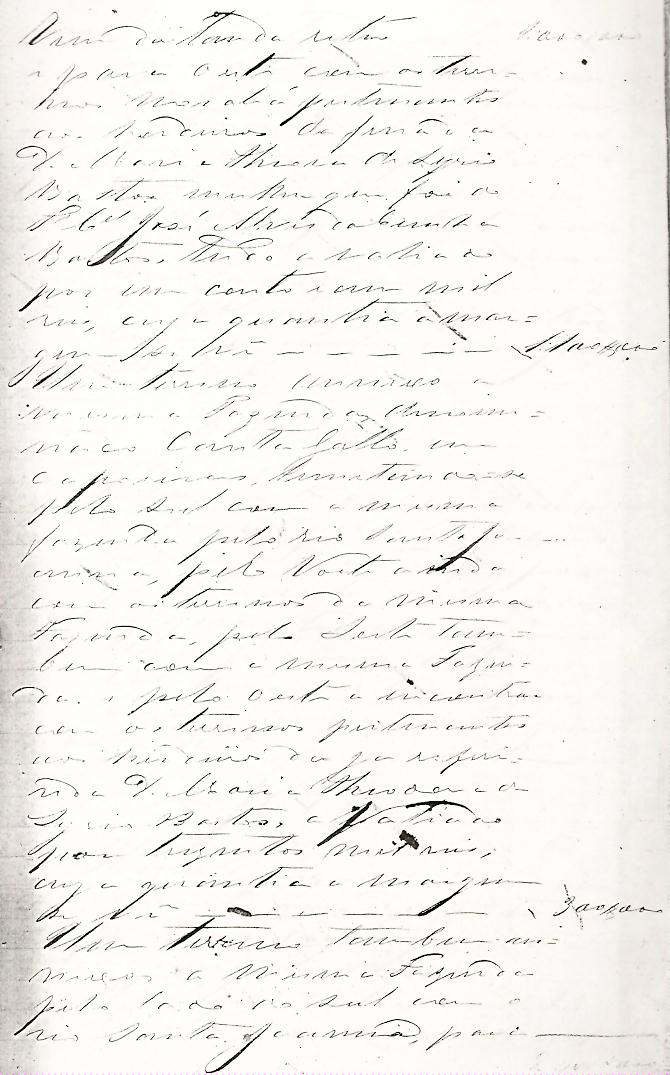 e para Oeste com os terre=
nos no mais pertencentes
aos herdeiros da finada
D. Maria Theodora de Lyrio
Bastos, mulher que foi do
José Alves da Cunha
Bastos, tudo avaliado
por um conto e cem mil
reis, cuja quantia a mar=
gem se vê — — — — — 1:100$000
Um terreno annexo a
mesma Fazenda, denomi=
nado Canta Gallo, em
capoeiras, limitando-se
pelo sul com a mesma
fazenda pelo rio Santa Jo-
anna, pelo Norte ainda
com os terrenos da mesma
Fazenda, pelo Leste tam=
bem com a mesma Fazen=
da e pelo Oeste a encontrar
com os terrenos pertencentes
aos herdeiros da ja referi=
da D. Maria Theodora de
Lyrio Bastos, avaliado
por trezentos mil reis,
cuja quantia a margem
se vê — — — — — 300$000
Um terreno tambem an=
nexo a mesma Fazenda
pelo lado do sul com o
rio Santa Joanna, para